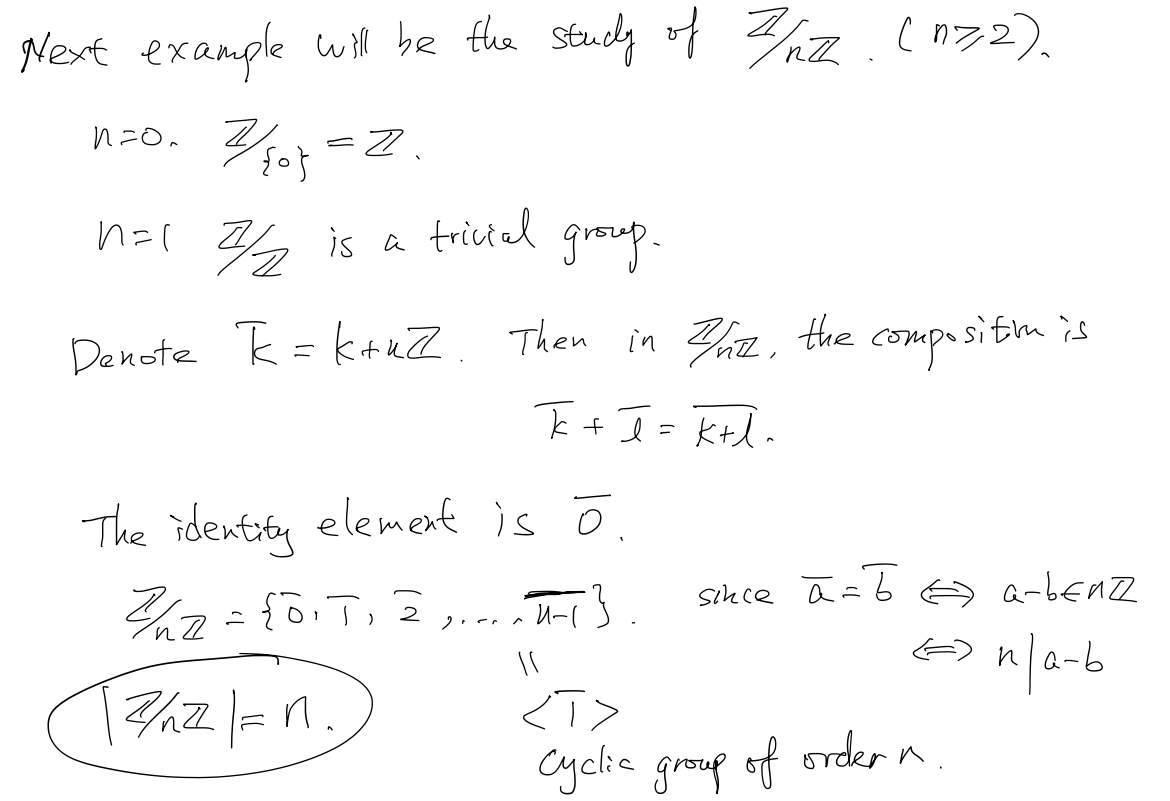 Next example will be the study of ℤ/nℤ. (n⩾2).
n=0. ℤ/{0} = ℤ.
n=1 ℤ/ℤ is a trivial group.
Denote k̅ = k+nℤ. Then in ℤ/nℤ, the composition is
k̅ + l̅ = \overline{k+l}.
The identity element is 0̅.
ℤ/nℤ = {0̅, 1̅, 2̅, ...., \overline{n-1}}. since a̅ = b̅ ⟺ a-b∈nℤ
|| ⟺ n | a-b
|ℤ/nℤ| = n. <1̅>
cyclic group of order n.